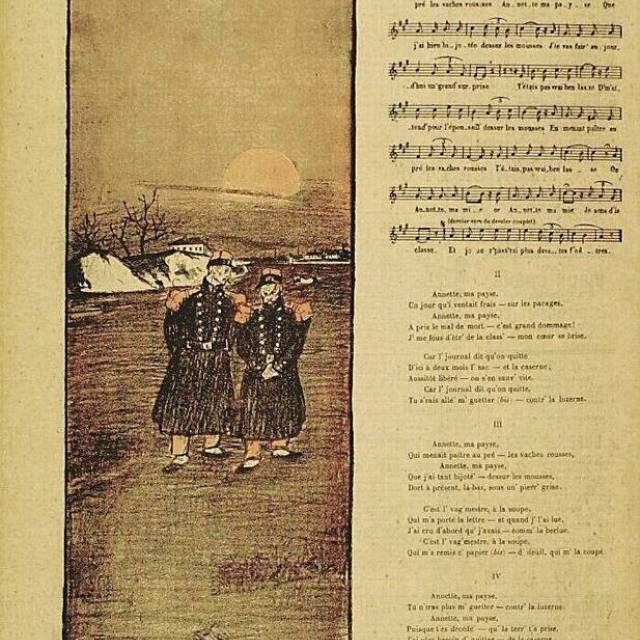 pré les vaches rousses An..net..te ma pa..y..se Que
j'ai bien bi..jo..tée dessur les mousses J'te vas fair' un jour,
d'bus un'grand' sur..prise T'étais pas vrai ben lasse D'm'at.
..tend' pour l'épou..sell' dessur les mousses En menant paître au
pré les vaches rousses T'é..tais, pas vrai, ben las..se Ou
An..net..te, ma mi..e or An..net..te ma mor Je sens d'la
(dernier vers du dernier couplet)
classe. Et je ne r'pass'rai plus dess..ces f'nê..tres.
II
Annette, ma payse,
Un jour qu'i ventait frais — sur les pacages,
Annette, ma payse,
A pris le mal de mort — c'est grand dommage!
J' me fous d'êtr' de la class' — mon cœur se brise,
Car l' journal dit qu'on quitte
D'ici à deux mois l' sac — et la caserne;
Aussitôt libéré — on s'en sauv' vite.
Car l' journal dit qu'on quitte,
Tu s'rais allé' m' guetter (bis) — contr' la luzerne.
III
Annette, ma payse,
Qui menait paître au pré — les vaches rousses,
Annette, ma payse,
Que j'ai tant bijoté' — dessur les mousses,
Dort à présent, là-bas, sous un' pierr' grise.
C'est l' vag'mestre, à la soupe,
Qui m'a porté la lettre — et quand j' l'ai lue,
J'ai cru d'abord qu' j'avais — comm' la berlue.
C'est l' vag'mestre, à la soupe,
Qui m'a remis c' papier (bis) — d' deuil, qui m' la coupe.
IV
Annette, ma payse,
Tu n'iras plus m' guetter — contr' la luzerne.
Annette, ma payse,
Puisque t'es décédé' — qu' la terr' t'a prise,